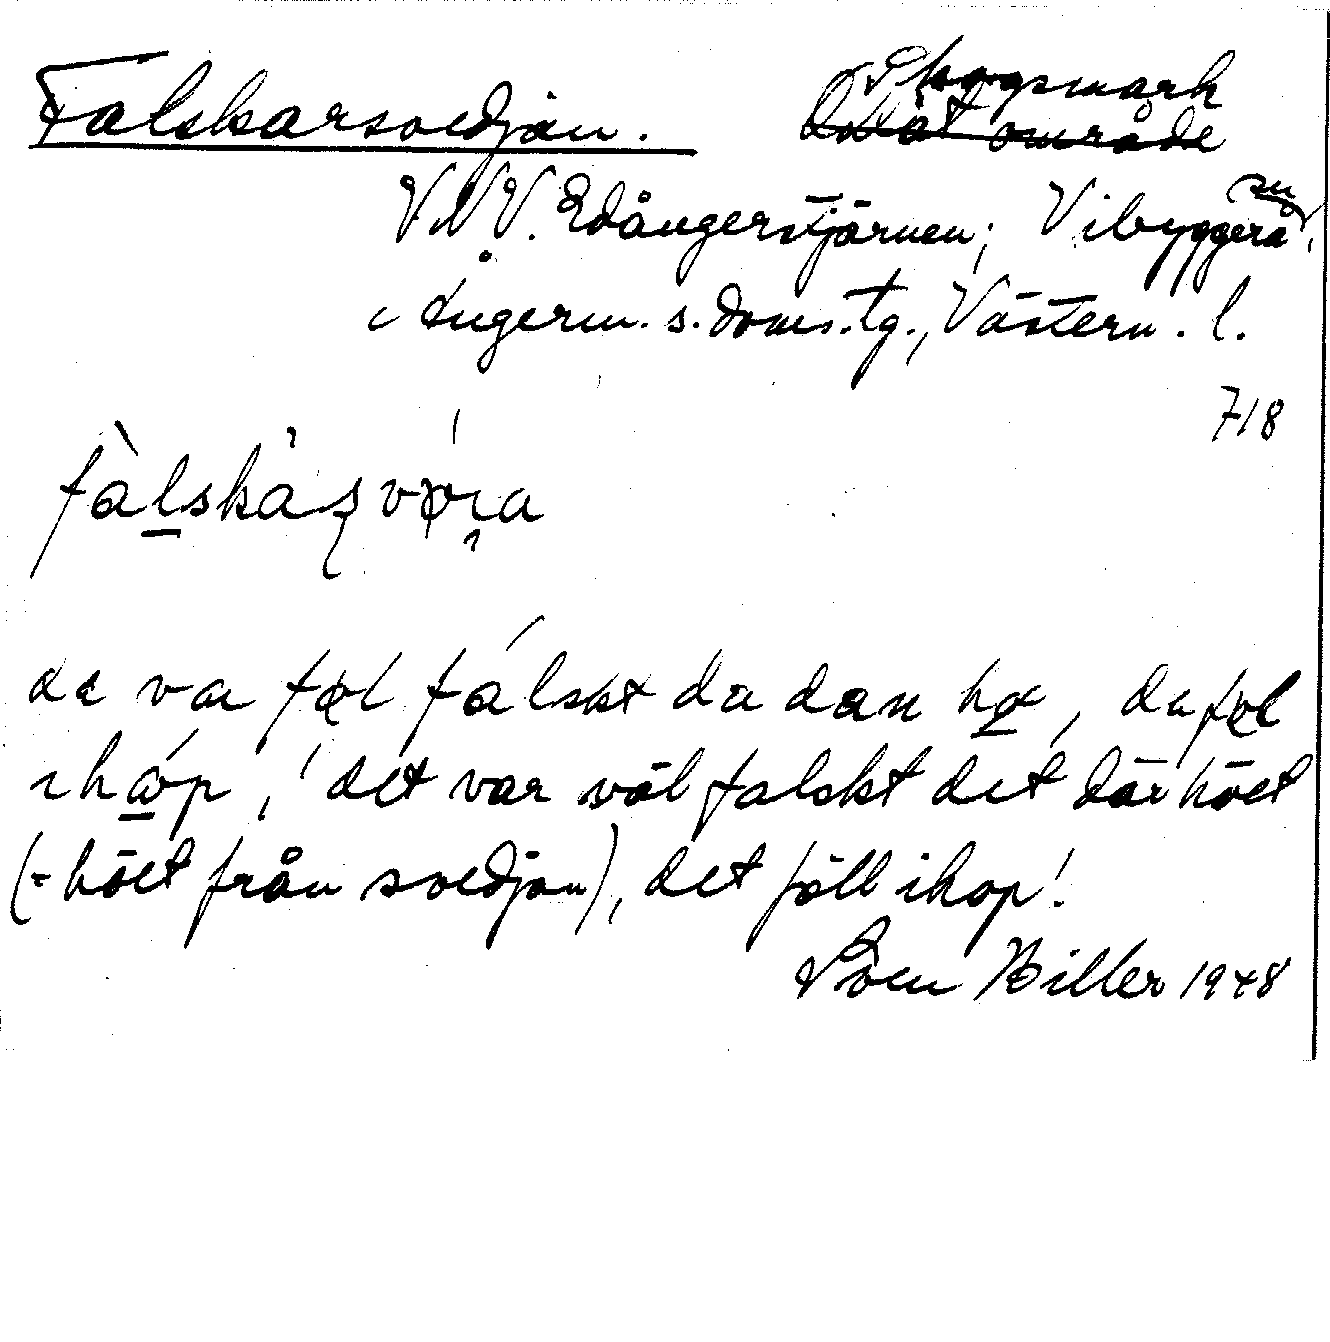 Falskarsvedjan. Skogsmark
Odlat område
V.N.V. Edångerstjärnen; Vibyggerå sn,
Ångerm. s. doms.tg., Västern. l.
718
fàlskàʂvø̀ɪa
dɛ va føl fálskt dɛ dan hø, dɛ føl
ihóp, 'det var väl falskt det där höet
(= höet från svedjan), det föll ihop'.
Sven Biller 1948